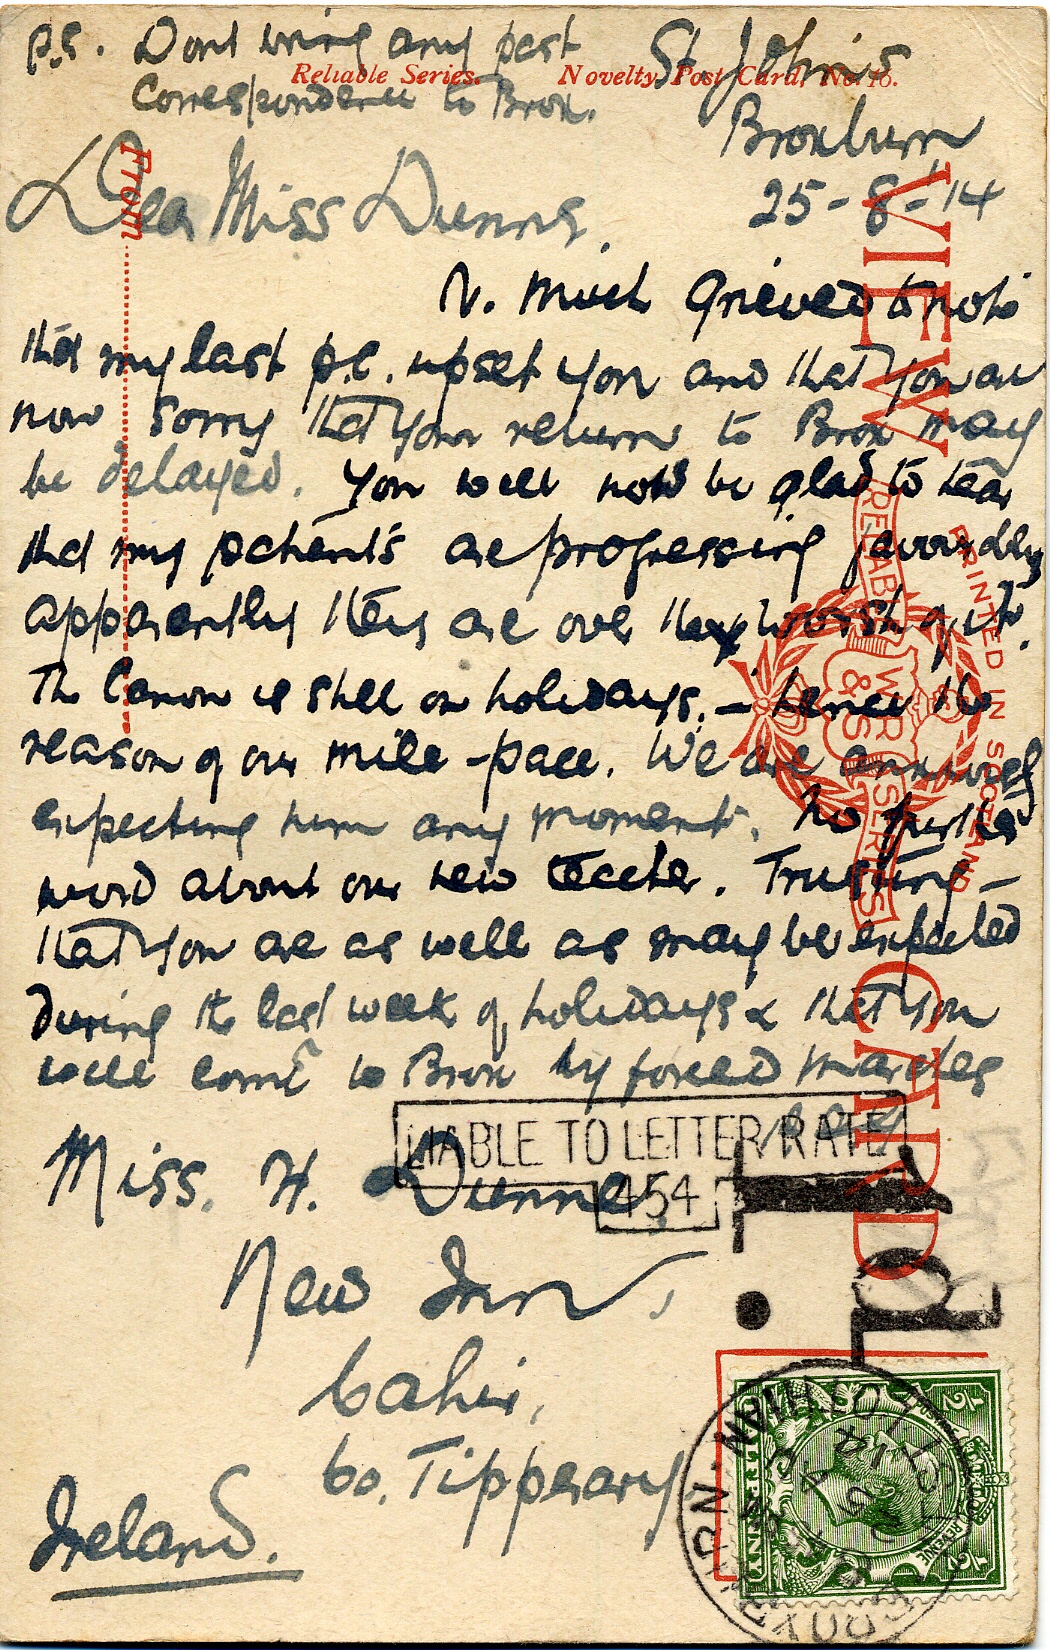 p.s. Dont bring any past
correspondence to Brox.
Reliable Series.
Novelty Post Card, No. 10.
St John's
Broxburn
25-8-'14
From
Dear Miss Dunne,
V. much grieved to note
that my last p.c. upset you and that you are
now sorry that your return to Brox may
be delayed. You will now be glad to hear
that my patients are progressing favourably
apparently they are over the worst of it.
The Canon is still on holidays, – hence the
reason of our mile-pace. We are
expecting him any moment. No further
word about our new teacher. Trusting –
that you are as well as may be expected
during the last week of holidays & that you
will come to Brox by forced marches
Miss. H. Dunne,
New Inn,
Cahir,
Co. Tipperary
Ireland.
VIEW CARD
RELIABLE
WR & S
SERIES
PRINTED IN SCOTLAND
LIABLE TO LETTER RATE
454
T.
1d
BROXBURN · WEST LOTHIAN
14
POSTAGE
REVENUE
1/2
1/2